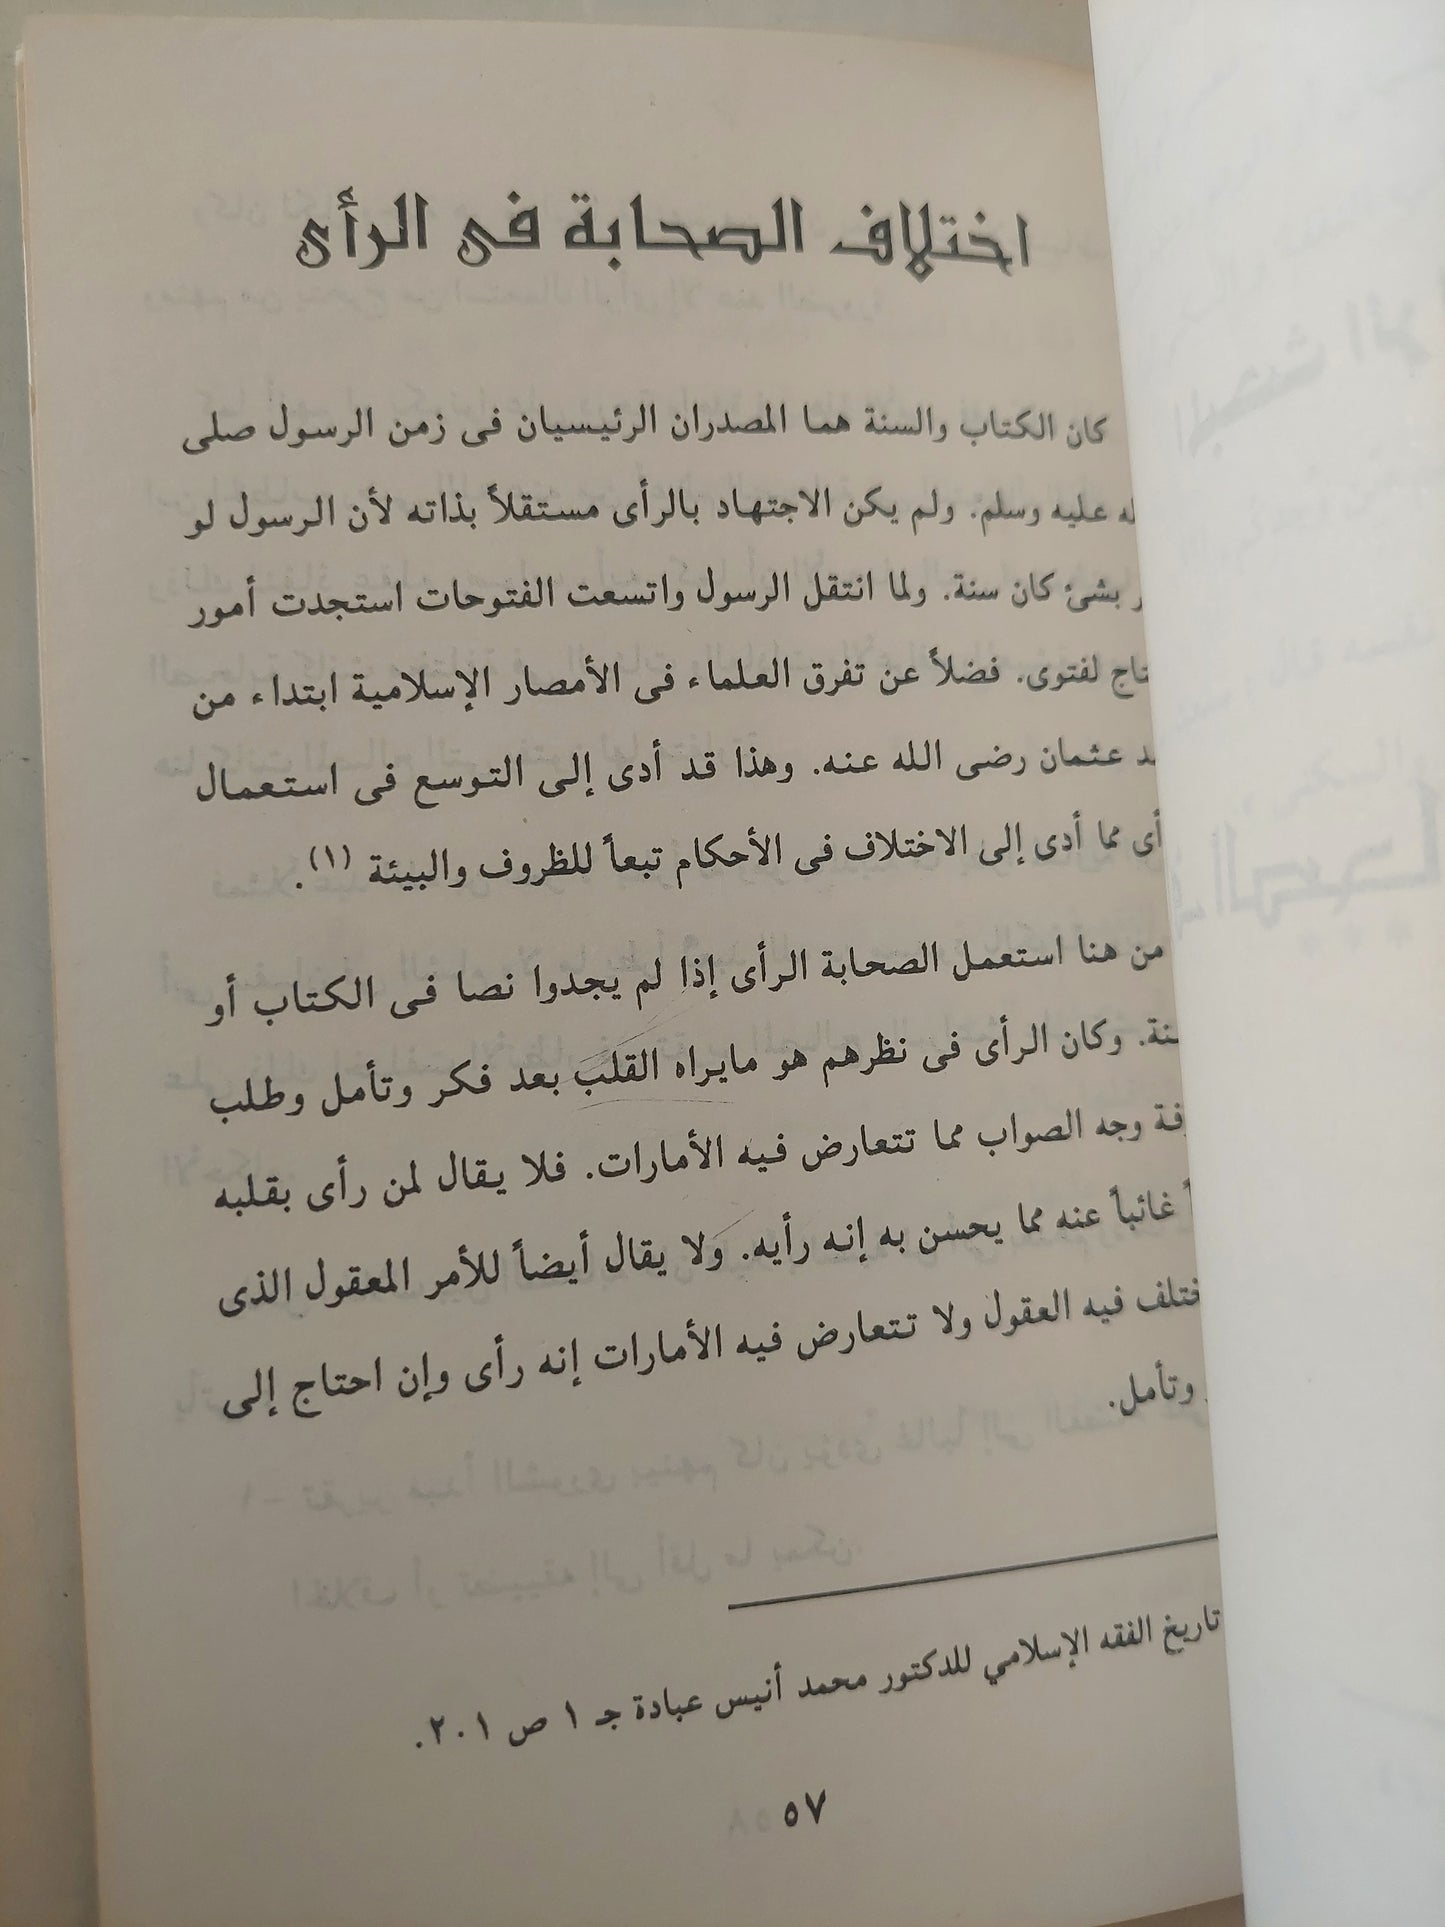 اختلاف الصحابة فى الرأى
كان الكتاب والسنة هما المصدران الرئيسيان فى زمن الرسول صلى
عليه وسلم. ولم يكن الاجتهاد بالرأى مستقلاً بذاته لأن الرسول لو
بشئ كان سنة. ولما انتقل الرسول واتسعت الفتوحات استجدت أمور
لفتوى. فضلاً عن تفرق العلماء فى الأمصار الإسلامية ابتداء من
عثمان رضى الله عنه. وهذا قد أدى إلى التوسع فى استعمال
مما أدى إلى الاختلاف فى الأحكام تبعاً للظروف والبيئة (١).
من هنا استعمل الصحابة الرأى إذا لم يجدوا نصا فى الكتاب أو
وكان الرأى فى نظرهم هو مايراه القلب بعد فكر وتأمل وطلب
وجه الصواب مما تتعارض فيه الأمارات. فلا يقال لمن رأى بقلبه
غائباً عنه مما يحسن به إنه رأيه. ولا يقال أيضاً للأمر المعقول الذى
فيه العقول ولا تتعارض فيه الأمارات إنه رأى وإن احتاج إلى
وتأمل.
تاريخ الفقه الإسلامي للدكتور محمد أنيس عبادة جـ ١ ص ٢٠١.
٥٧